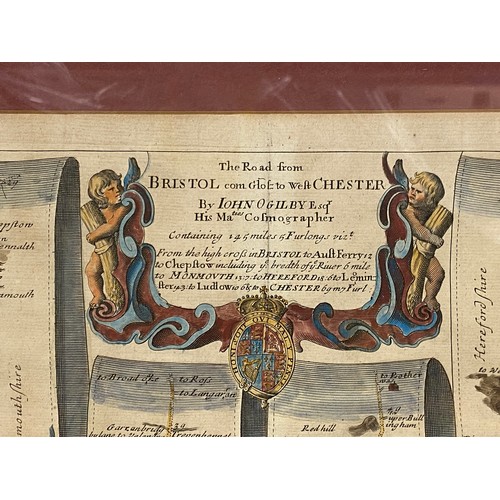 The Road from
BRISTOL com Glosᵗ to West CHESTER
By IOHN OGILBY Esqʳ
His Maᵗⁱᵉˢ Cosmographer
Containing 145 miles 5 Furlongs vizᵗ
From the high cross in BRISTOL to Aust Ferry 12
to Chepstow including yᵉ bredth of yᵉ River 6 mile
to MONMOUTH to HEREFORD 18.6 to Lemin
ster to Ludlow to CHESTER
Furl
HONI SOIT QUI MAL
pstow
mouth
mouthshire
Herefordshire
to Broad oke
to Ross
to Langaron
Garranbridg
by lane to
Trevenhonnet
Red hill
to Brother
way
uper Bull
ingham